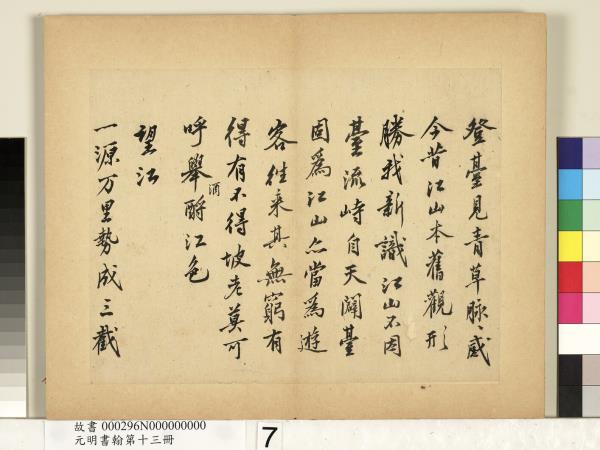 登臺見青草脉〻感
今昔江山本舊觀形
勝我新識江山不因
臺流峙自天闢臺
固爲江山亦當爲遊
客徃来其無窮有
得有不得坡老莫可
呼舉酒酹江色
望江
一源万里勢成三截
故書 000296N000000000
元明書翰第十三冊
7